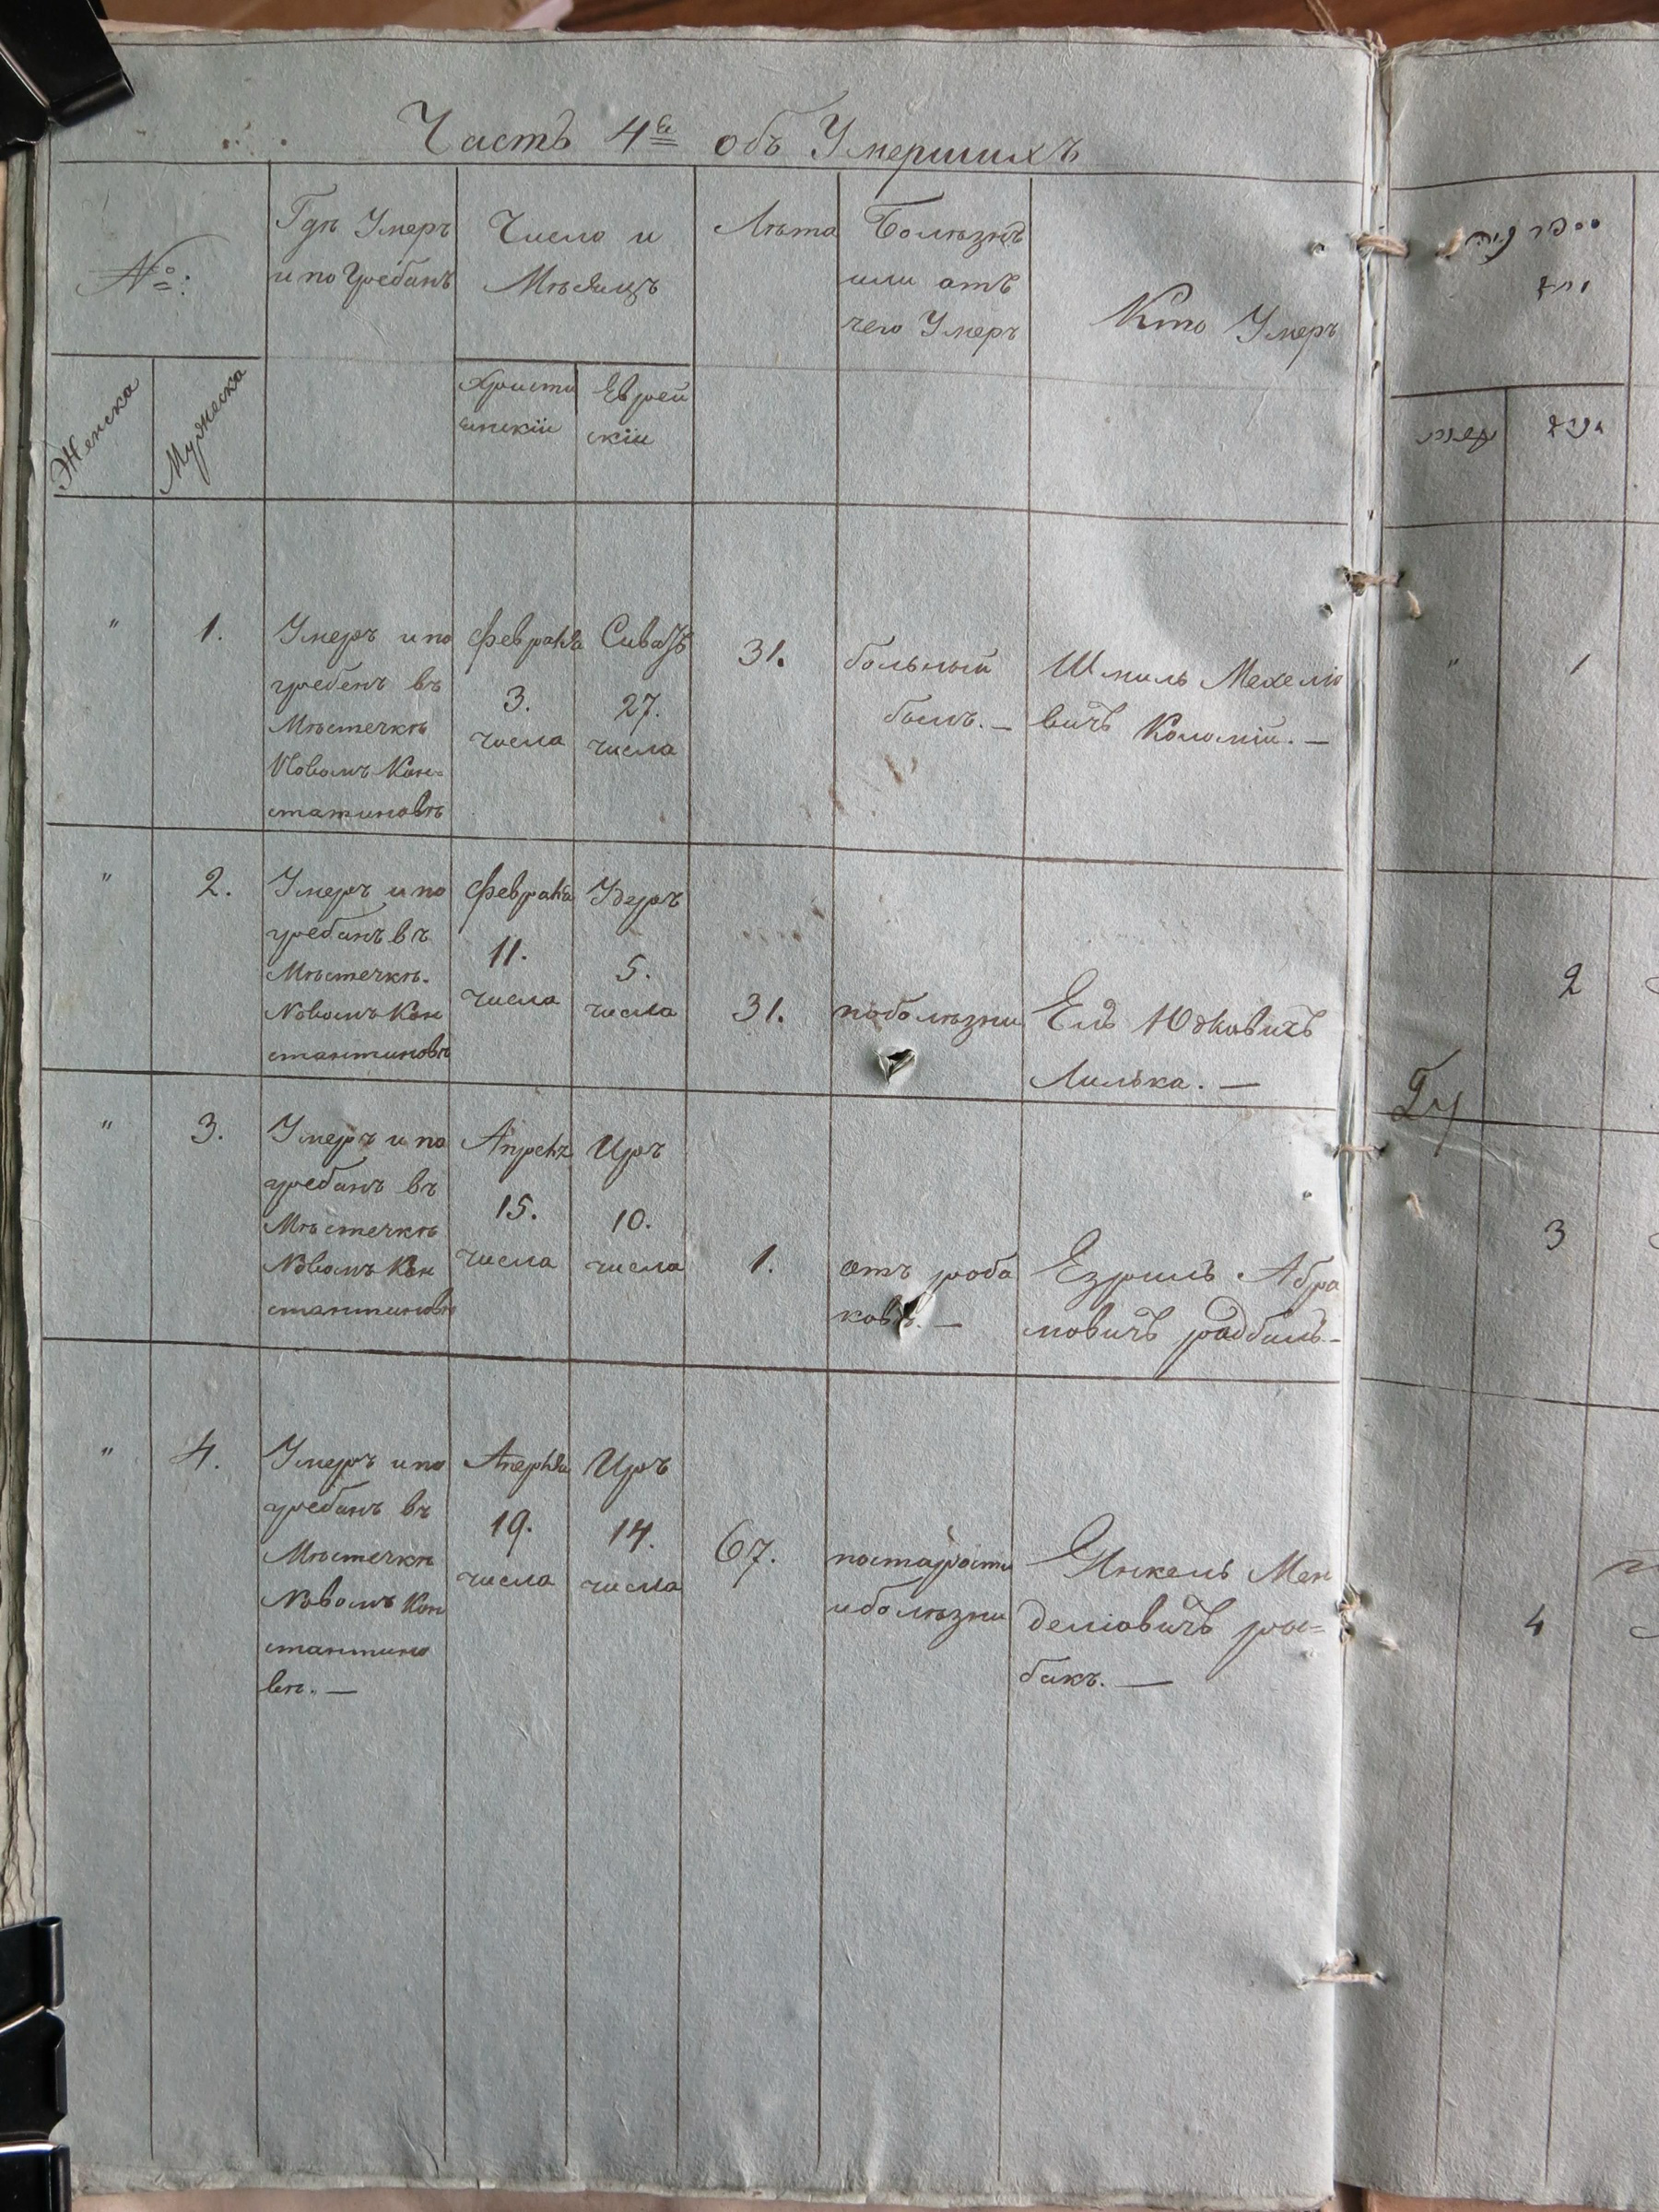 Часть 4я объ Умершихъ
№:
Гдѣ Умеръ
и погребанъ
Число и
Мѣсяцъ
Лѣта
Болѣзнь
или отъ
чего Умеръ
Кто Умеръ
Женска
Мужеска
Христи
анскiй
Еврей
скiй
"
1.
Умеръ и по
гребенъ въ
Мѣстечкѣ
Новомъ Кон-
статиновѣ
февраля
3.
числа
27.
числа
31.
больный
былъ. —
Шмиль Мехелiо
вичъ Коломiи. —
"
2.
Умеръ и по
гребанъ въ
Мѣстечкѣ.
Новомъ Кон
стантиновѣ
февраля
11.
числа
Удеръ
5.
числа
31.
поболѣзни
Ель Юдковичъ
Лилька. —
"
3.
Умеръ и по
гребанъ въ
Мѣстечкѣ
Новомъ Кон
стантиновѣ
15.
числа
Иръ
10.
числа
1.
отъ роба
ковъ. —
Езриль Абра
мовичъ
"
4.
Умеръ и по
гребанъ въ
Мѣстечкѣ
Новомъ Кон
стантино
вѣ. —
19.
числа
Иръ
14.
числа
67.
постарости
и болѣзни
Янкель Мен
делiовичъ ры=
бакъ. —
"
1
2
3
4